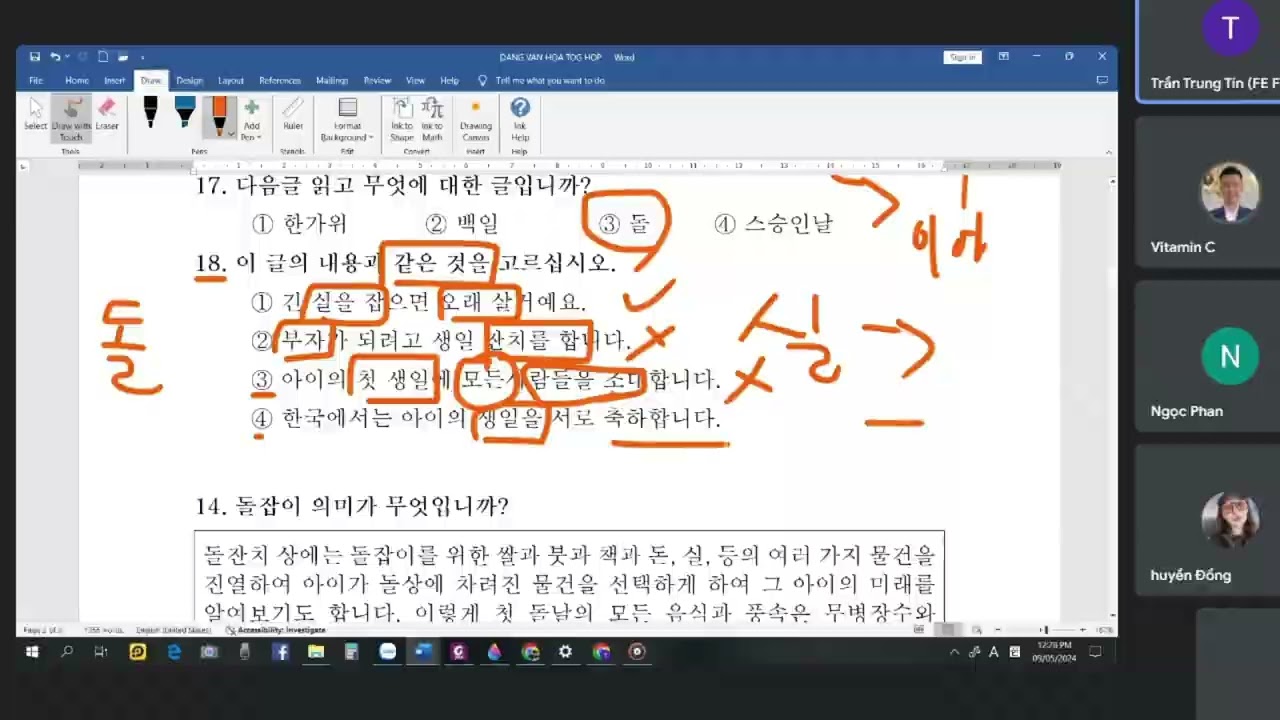 DANG VAN HOA TOG HOP - Word
Sign in
File Home Insert Draw Design Layout References Mailings Review View Help Tell me what you want to do
Select Draw with Touch Eraser Add Pen Ruler Format Background Ink to Shape Ink to Math Drawing Canvas Ink Help
Tools Pens Stencils Edit Convert Insert Help
17. 다음글 읽고 무엇에 대한 글입니까?
① 한가위 ② 백일 ③ 돌 ④ 스승인날
18. 이 글의 내용과 같은 것을 고르십시오.
① 긴 실을 잡으면 오래 살거예요.
② 부자가 되려고 생일 잔치를 합니다.
③ 아이의 첫 생일에 모든사람들을 초대합니다.
④ 한국에서는 아이의 생일을 서로 축하합니다.
돌
실
14. 돌잡이 의미가 무엇입니까?
돌잔치 상에는 돌잡이를 위한 쌀과 붓과 책과 돈, 실, 등의 여러 가지 물건을
진열하여 아이가 돌상에 차려진 물건을 선택하게 하여 그 아이의 미래를
알아보기도 합니다. 이렇게 첫 돌날의 모든 음식과 풍속은 무병장수와
English (United States) Accessibility: Investigate
12:28 PM
09/05/2024
T
Trần Trung Tín (FE F
Vitamin C
N
Ngọc Phan
huyền Đồng